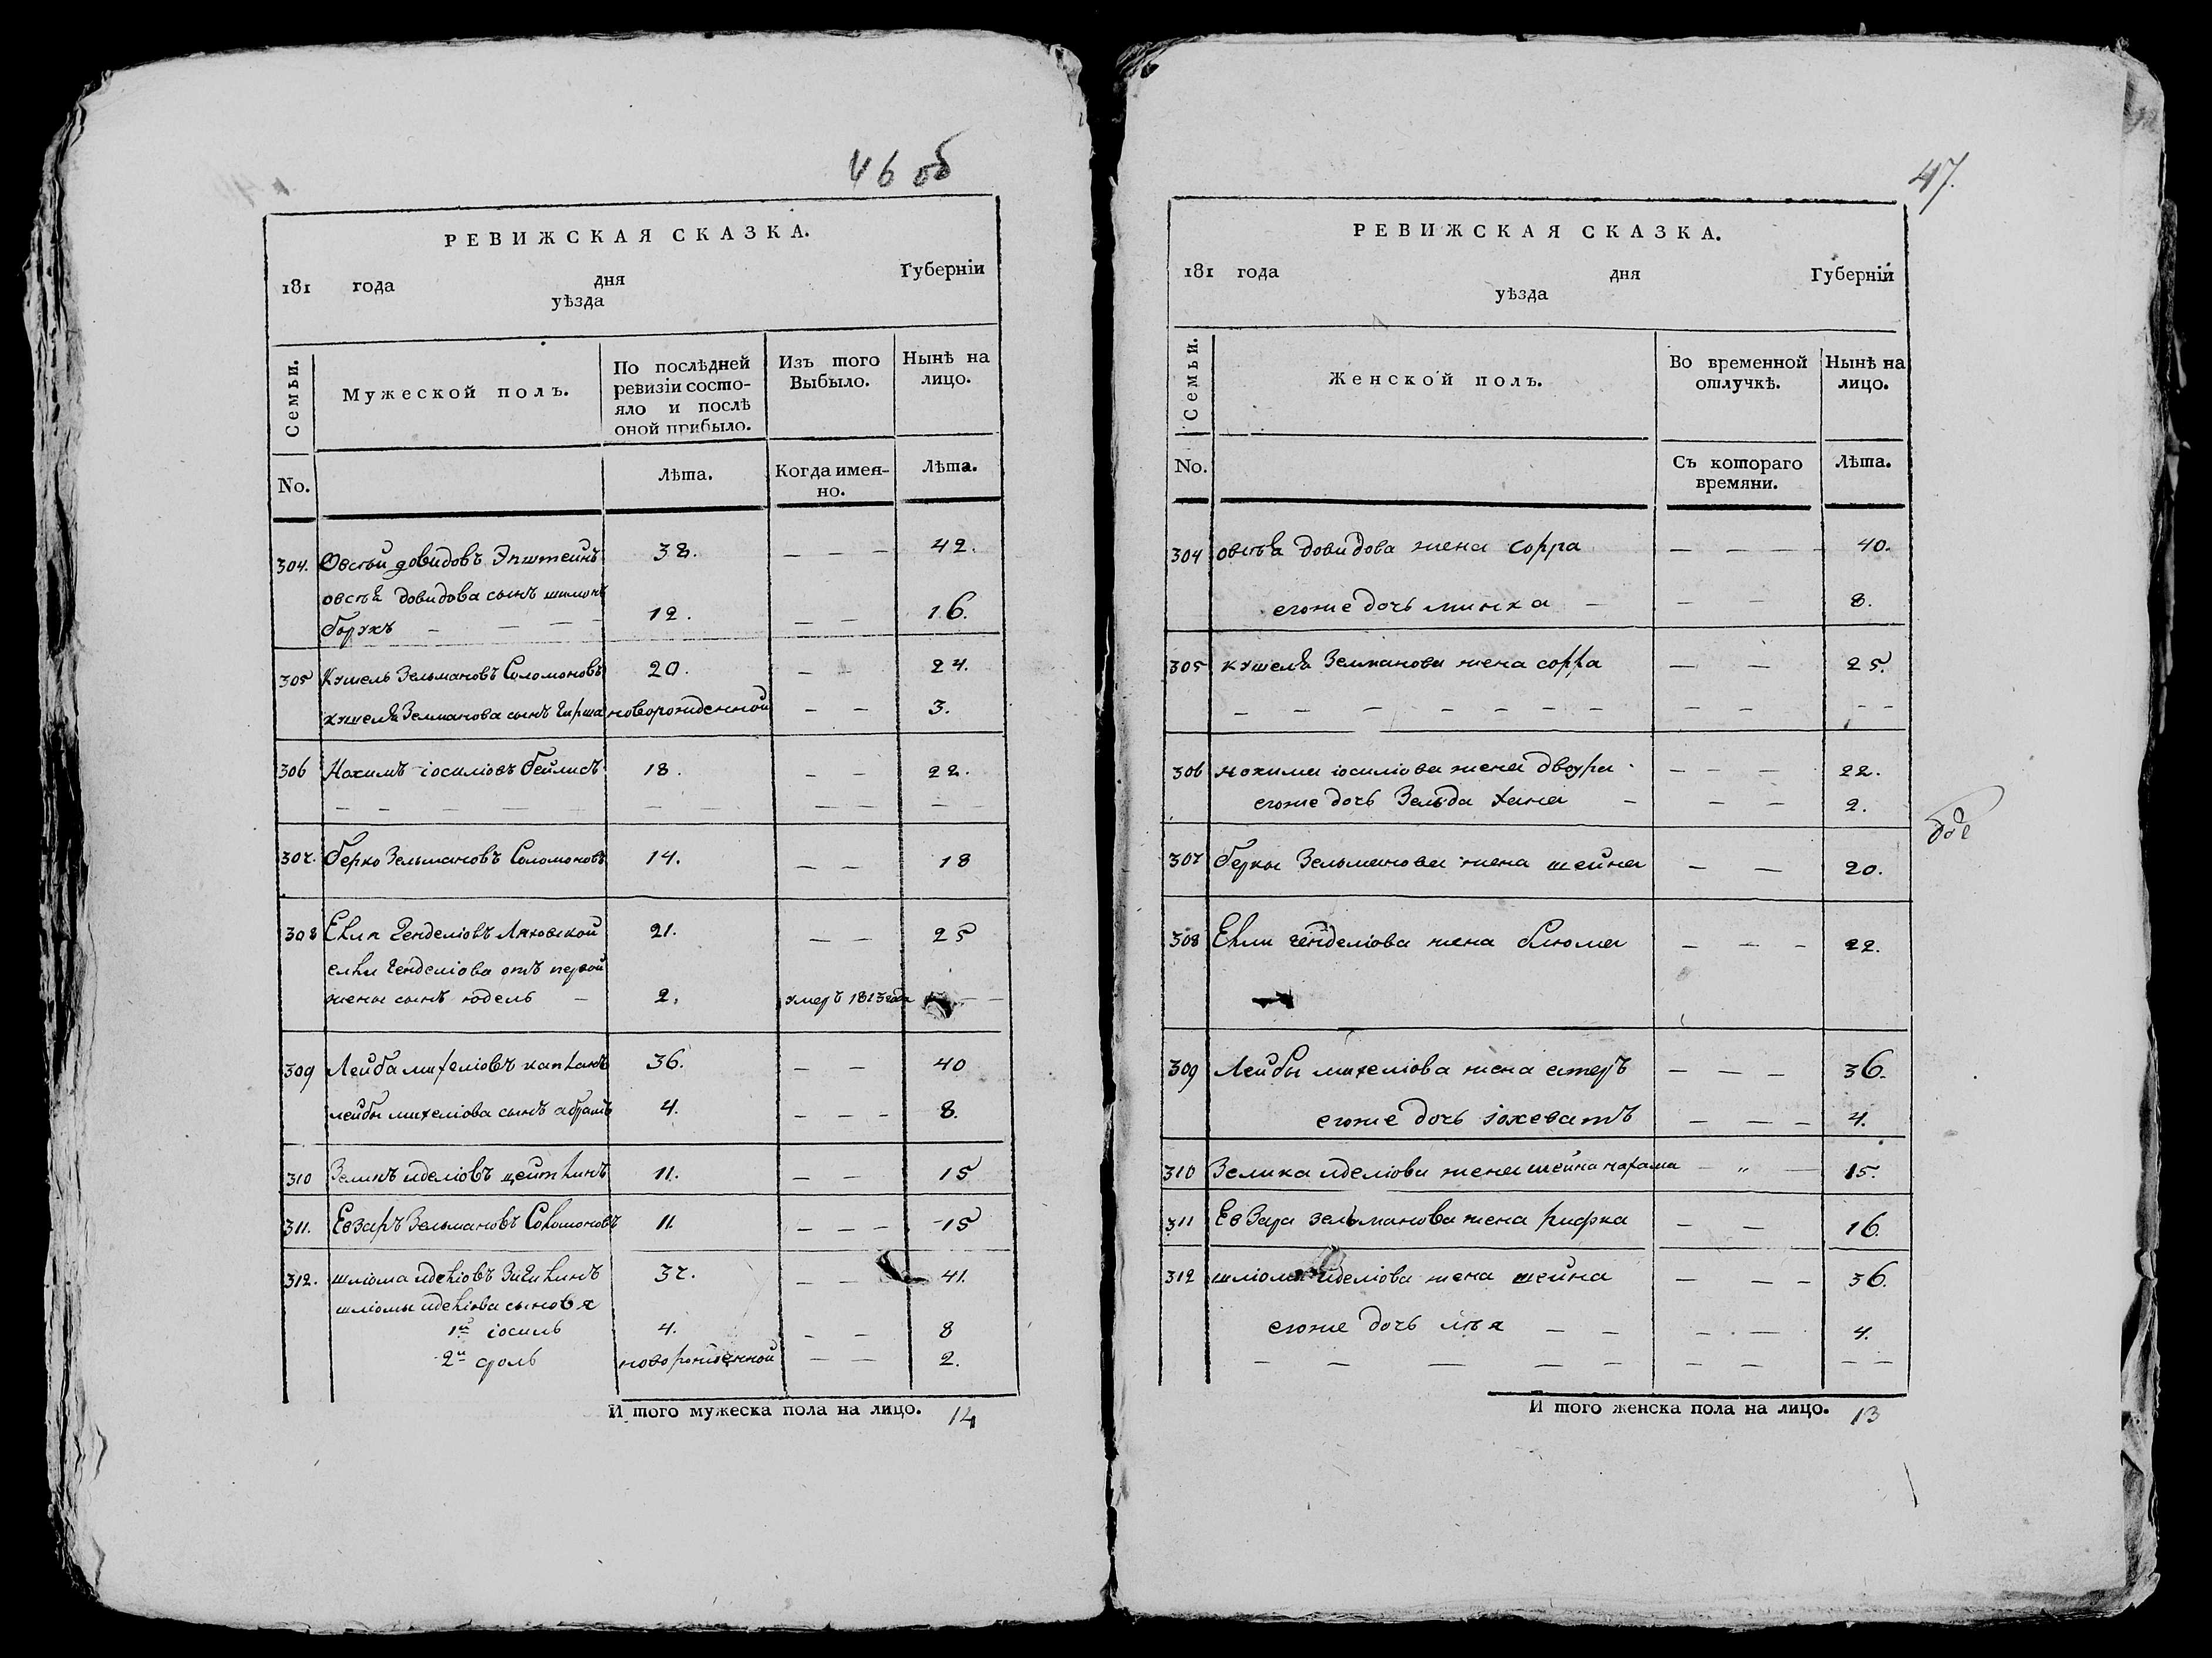 46 об
РЕВИЖСКАЯ СКАЗКА.
181 года дня Губерніи
уѣзда
Семьи. Мужеской полъ. По послѣдней ревизіи состо-яло и послѣ оной прибыло. Изъ того Выбыло. Нынѣ на лицо.
No. Лѣта. Когда имен-но. Лѣта.
304. Овсѣй довидовъ Эпштейнъ 38. — — — 42.
овсѣя довидова сынъ шимонъ
борухъ — — — — 12. — — 16.
305 Кушель Зельмановъ Соломоновъ 20. — — 24.
кушеля Зелманова сынъ гирша новорожденной — — 3.
306 Нохимъ іосиліовъ бейлисъ 18. — — 22.
307. берко Зельмановъ Соломоновъ 14. — — 18
308 Елия генделіовъ Ляховской 21. — — 25
елии генделіова отъ первой
жены сынъ юдель — 2. умеръ 1813 года —
309 Лейба михеліовъ капланъ 36. — — 40
лейбы михеліова сынъ абрамъ 4. — — — 8.
310 Зеликъ иделіовъ цейтлинъ 11. — — 15
311. Евзаръ Зельмановъ Соломоновъ 11 — — — 15
312. шліома иделіовъ 37. — — 41.
шліомы иделіова сыновя
1й іосиль 4. — — 8
2й сроль новорожденной — — 2.
И того мужеска пола на лицо. 14
47.
РЕВИЖСКАЯ СКАЗКА.
181 года дня Губерніи
уѣзда
Семьи. Женской полъ. Во временной отлучкѣ. Нынѣ на лицо.
No. Съ котораго времяни. Лѣта.
304 овсѣя довидова жена сорра — — — — 40.
егоже дочь минха — — — 8.
305 кушеля Зелманова жена сорра — — 25.
306 нохима іосиліова жена двоура — — — 22.
егоже дочь Зельда хана — — — 2.
307 берки Зельманова жена шейна — — 20.
308 Елии генделіова жена блюма — — — 22.
309 Лейбы михеліова жена естеръ — — — 36.
егоже дочь іохеватъ — — — 4.
310 Зелика иделіова жена шейна нахама — „ — 15.
311 Евзара зельманова жена рифка — — 16.
312 шліомы иделіова жена шейна — — — 36.
егоже дочь лѣя — — — — 4.
И того женска пола на лицо. 13